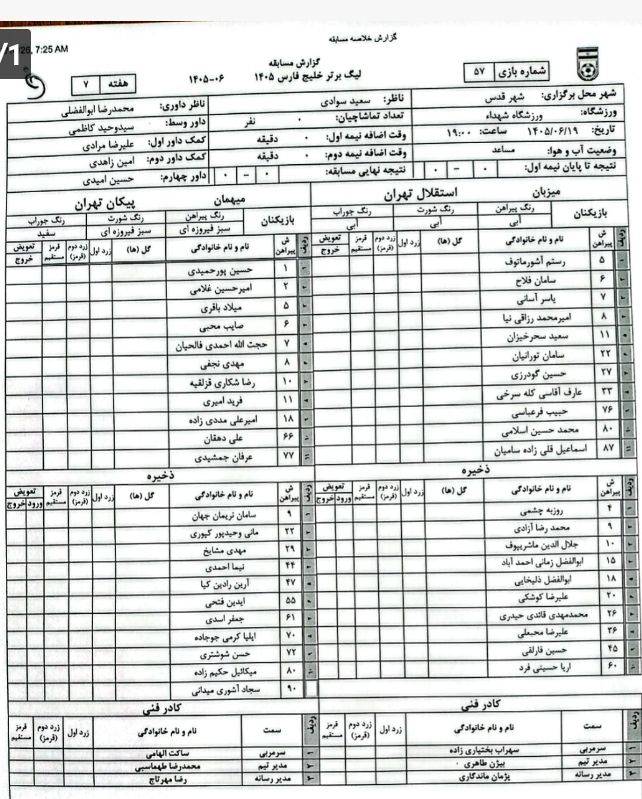 گزارش خلاصه مسابقه
26, 7:25 AM
/1
گزارش مسابقه
لیگ برتر خلیج فارس ۱۴۰۵
۱۴۰۵-۰۶
شماره بازی ۵۷
هفته ۷
شهر محل برگزاری: شهر قدس
ناظر: سعید سوادی
ناظر داوری: محمدرضا ابوالفضلی
ورزشگاه: ورزشگاه شهداء
تعداد تماشاچیان: ۰ نفر
داور وسط: سیدوحید کاظمی
تاریخ: ۱۴۰۵/۰۶/۱۹ ساعت: ۱۹:۰۰
وقت اضافه نیمه اول: ۰ دقیقه
کمک داور اول: علیرضا مرادی
وضعیت آب و هوا: مساعد
وقت اضافه نیمه دوم: ۰ دقیقه
کمک داور دوم: امین زاهدی
نتیجه تا پایان نیمه اول: ۰ - ۰
نتیجه نهایی مسابقه: ۰ - ۰
داور چهارم: حسین امیدی
میزبان استقلال تهران
بازیکنان
رنگ پیراهن رنگ شورت رنگ جوراب
آبی آبی آبی
ردیف ش پیراهن نام و نام خانوادگی گل (ها) زرد اول زرد دوم (قرمز) قرمز مستقیم تعویض خروج
۱ ۵ رستم آشورماتوف
۲ ۶ سامان فلاح
۳ ۷ یاسر آسانی
۴ ۸ امیرمحمد رزاقی نیا
۵ ۱۱ سعید سحرخیزان
۶ ۲۲ سامان تورانیان
۷ ۲۷ حسین گودرزی
۸ ۳۳ عارف آقاسی کله سرخی
۹ ۷۶ حبیب فرعباسی
۱۰ ۸۰ محمد حسین اسلامی
۱۱ ۸۷ اسماعیل قلی زاده سامیان
ذخیره
ردیف ش پیراهن نام و نام خانوادگی گل (ها) زرد اول زرد دوم (قرمز) قرمز مستقیم تعویض ورود خروج
۱ ۴ روزبه چشمی
۲ ۹ محمد رضا آزادی
۳ ۱۰ جلال الدین ماشریپوف
۴ ۱۵ ابوالفضل زمانی احمد آباد
۵ ۱۸ ابوالفضل ذلیخایی
۶ ۲۰ علیرضا کوشکی
۷ ۲۶ محمدمهدی قائدی حیدری
۸ ۳۶ علیرضا محبعلی
۹ ۴۵ حسین قارلقی
۱۰ ۶۰ اریا حسینی فرد
کادر فنی
ردیف سمت نام و نام خانوادگی زرد اول زرد دوم (قرمز) قرمز مستقیم
۱ سرمربی سهراب بختیاری زاده
۲ مدیر تیم بیژن طاهری
۳ مدیر رسانه پژمان ماندگاری
میهمان پیکان تهران
بازیکنان
رنگ پیراهن رنگ شورت رنگ جوراب
سبز فیروزه ای سبز فیروزه ای سفید
ردیف ش پیراهن نام و نام خانوادگی گل (ها) زرد اول زرد دوم (قرمز) قرمز مستقیم تعویض خروج
۱ ۱ حسین پورحمیدی
۲ ۲ امیرحسین غلامی
۳ ۵ میلاد باقری
۴ ۶ صایب محبی
۵ ۷ حجت الله احمدی فالحیان
۶ ۸ مهدی نجفی
۷ ۱۰ رضا شکاری قزلقیه
۸ ۱۱ فرید امیری
۹ ۱۸ امیرعلی مددی زاده
۱۰ ۶۶ علی دهقان
۱۱ ۷۷ عرفان جمشیدی
ذخیره
ردیف ش پیراهن نام و نام خانوادگی گل (ها) زرد اول زرد دوم (قرمز) قرمز مستقیم تعویض ورود خروج
۱ ۹ سامان نریمان جهان
۲ ۲۲ مانی وحیدپور کیوری
۳ ۲۹ مهدی مشایخ
۴ ۴۴ نیما احمدی
۵ ۴۷ آرین رادین کیا
۶ ۵۵ ایدین فتحی
۷ ۶۱ جعفر اسدی
۸ ۷۰ ایلیا کرمی جوجاده
۹ ۷۲ حسن شوشتری
۱۰ ۸۰ میکائیل حکیم زاده
۹۰ سجاد آشوری میدانی
کادر فنی
ردیف سمت نام و نام خانوادگی زرد اول زرد دوم (قرمز) قرمز مستقیم
۱ سرمربی ساکت الهامی
۲ مدیر تیم محمدرضا طهماسبی
۳ مدیر رسانه رضا مهرتاج